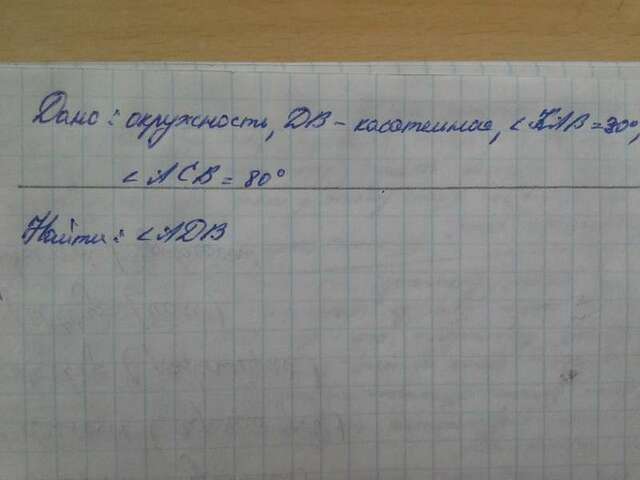 Дано: окружность, DB - касательная, ∠KAB = 30°,
∠ACB = 80°
Найти: ∠ADB